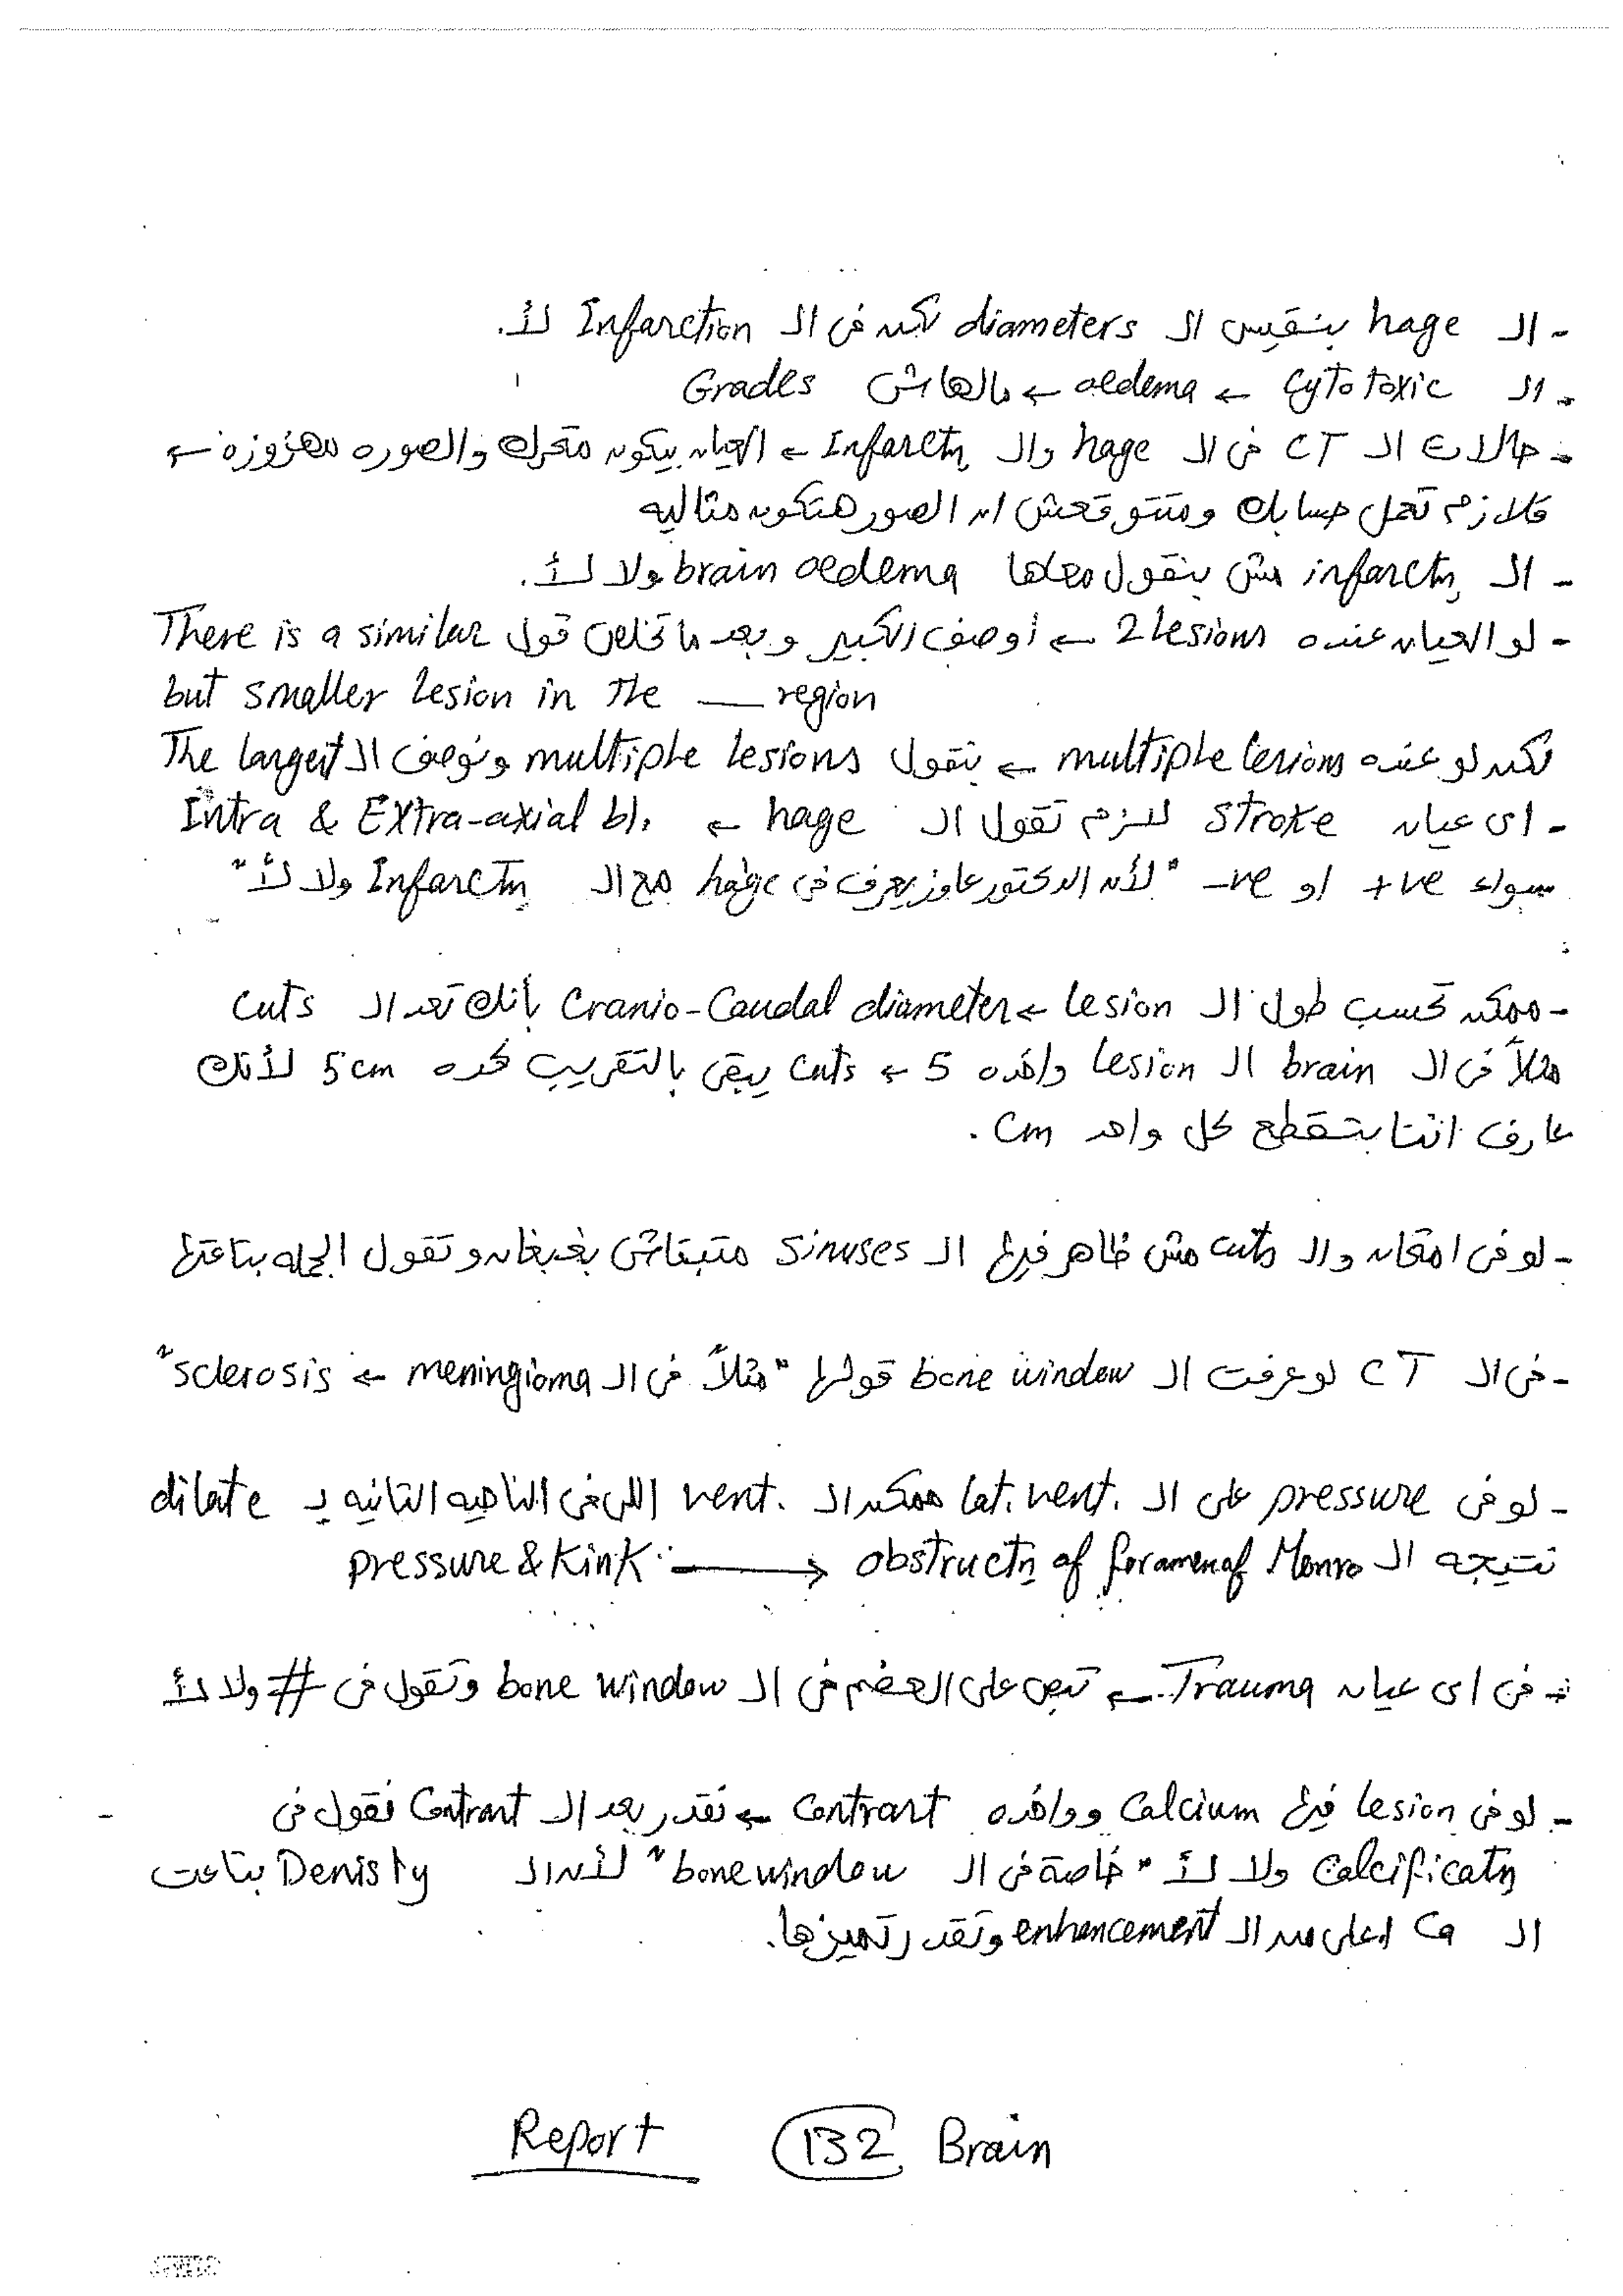 - الـ hage بنقيس الـ diameters لكن فى الـ Infarction لأ.
- الـ Cytotoxic ← oedema ← مالهاش Grades
- حالات الـ CT فى الـ hage والـ Infarctn ← العيان بيكون متحرك والصوره مهزوزه ←
فلازم تعمل حسابك ومتتوقعش ان الصور هتكون مثاليه
- الـ infarctn مش بنقول معاها brain oedema ولا لأ.
- لو العيان عنده 2 lesions ← أوصف الكبير وبعد ما تخلص قول There is a similar
but smaller lesion in the ___ region
لكن لو عنده multiple lesions ← بنقول multiple lesions ونوصف الـ The largest
- اى عيان stroke لازم تقول الـ hage ← Intra & Extra-axial bl.
سواء +ve او -ve "لأن الدكتور عاوز يعرف فى hage مع الـ Infarctn ولا لأ"
- ممكن تحسب طول الـ lesion ← Cranio-Caudal diameter بأنك تعد الـ cuts
مثلاً فى الـ brain الـ lesion واخده 5 ← cuts يبقى بالتقريب كده 5 cm لأنك
عارف اننا بنقطع كل واحد cm .
- لو فى امتحان والـ cuts مش ظاهر فيها الـ sinuses متبقاش بغبغان وتقول الجمله بتاعتها
- فى الـ CT لو عرفت الـ bone window قولها "مثلاً فى الـ meningioma ← sclerosis"
- لو فى pressure على الـ lat. vent. ممكن الـ vent. اللى فى الناحيه التانيه يـ dilate
نتيجه الـ obstructn of foramen of Monro ← pressure & kink
- فى اى عيان Trauma ← تبص على العضم فى الـ bone window وتقول فى # ولا لأ
- لو فى lesion فيها Calcium وواخده contrast ← نقدر بعد الـ Contrast نقول فى
Calcificatn ولا لأ "خاصة فى الـ bone window" لأن الـ Denisty بتاعت
الـ Ca اعلى من الـ enhancement وتقدر تميزها.
Report 132 Brain